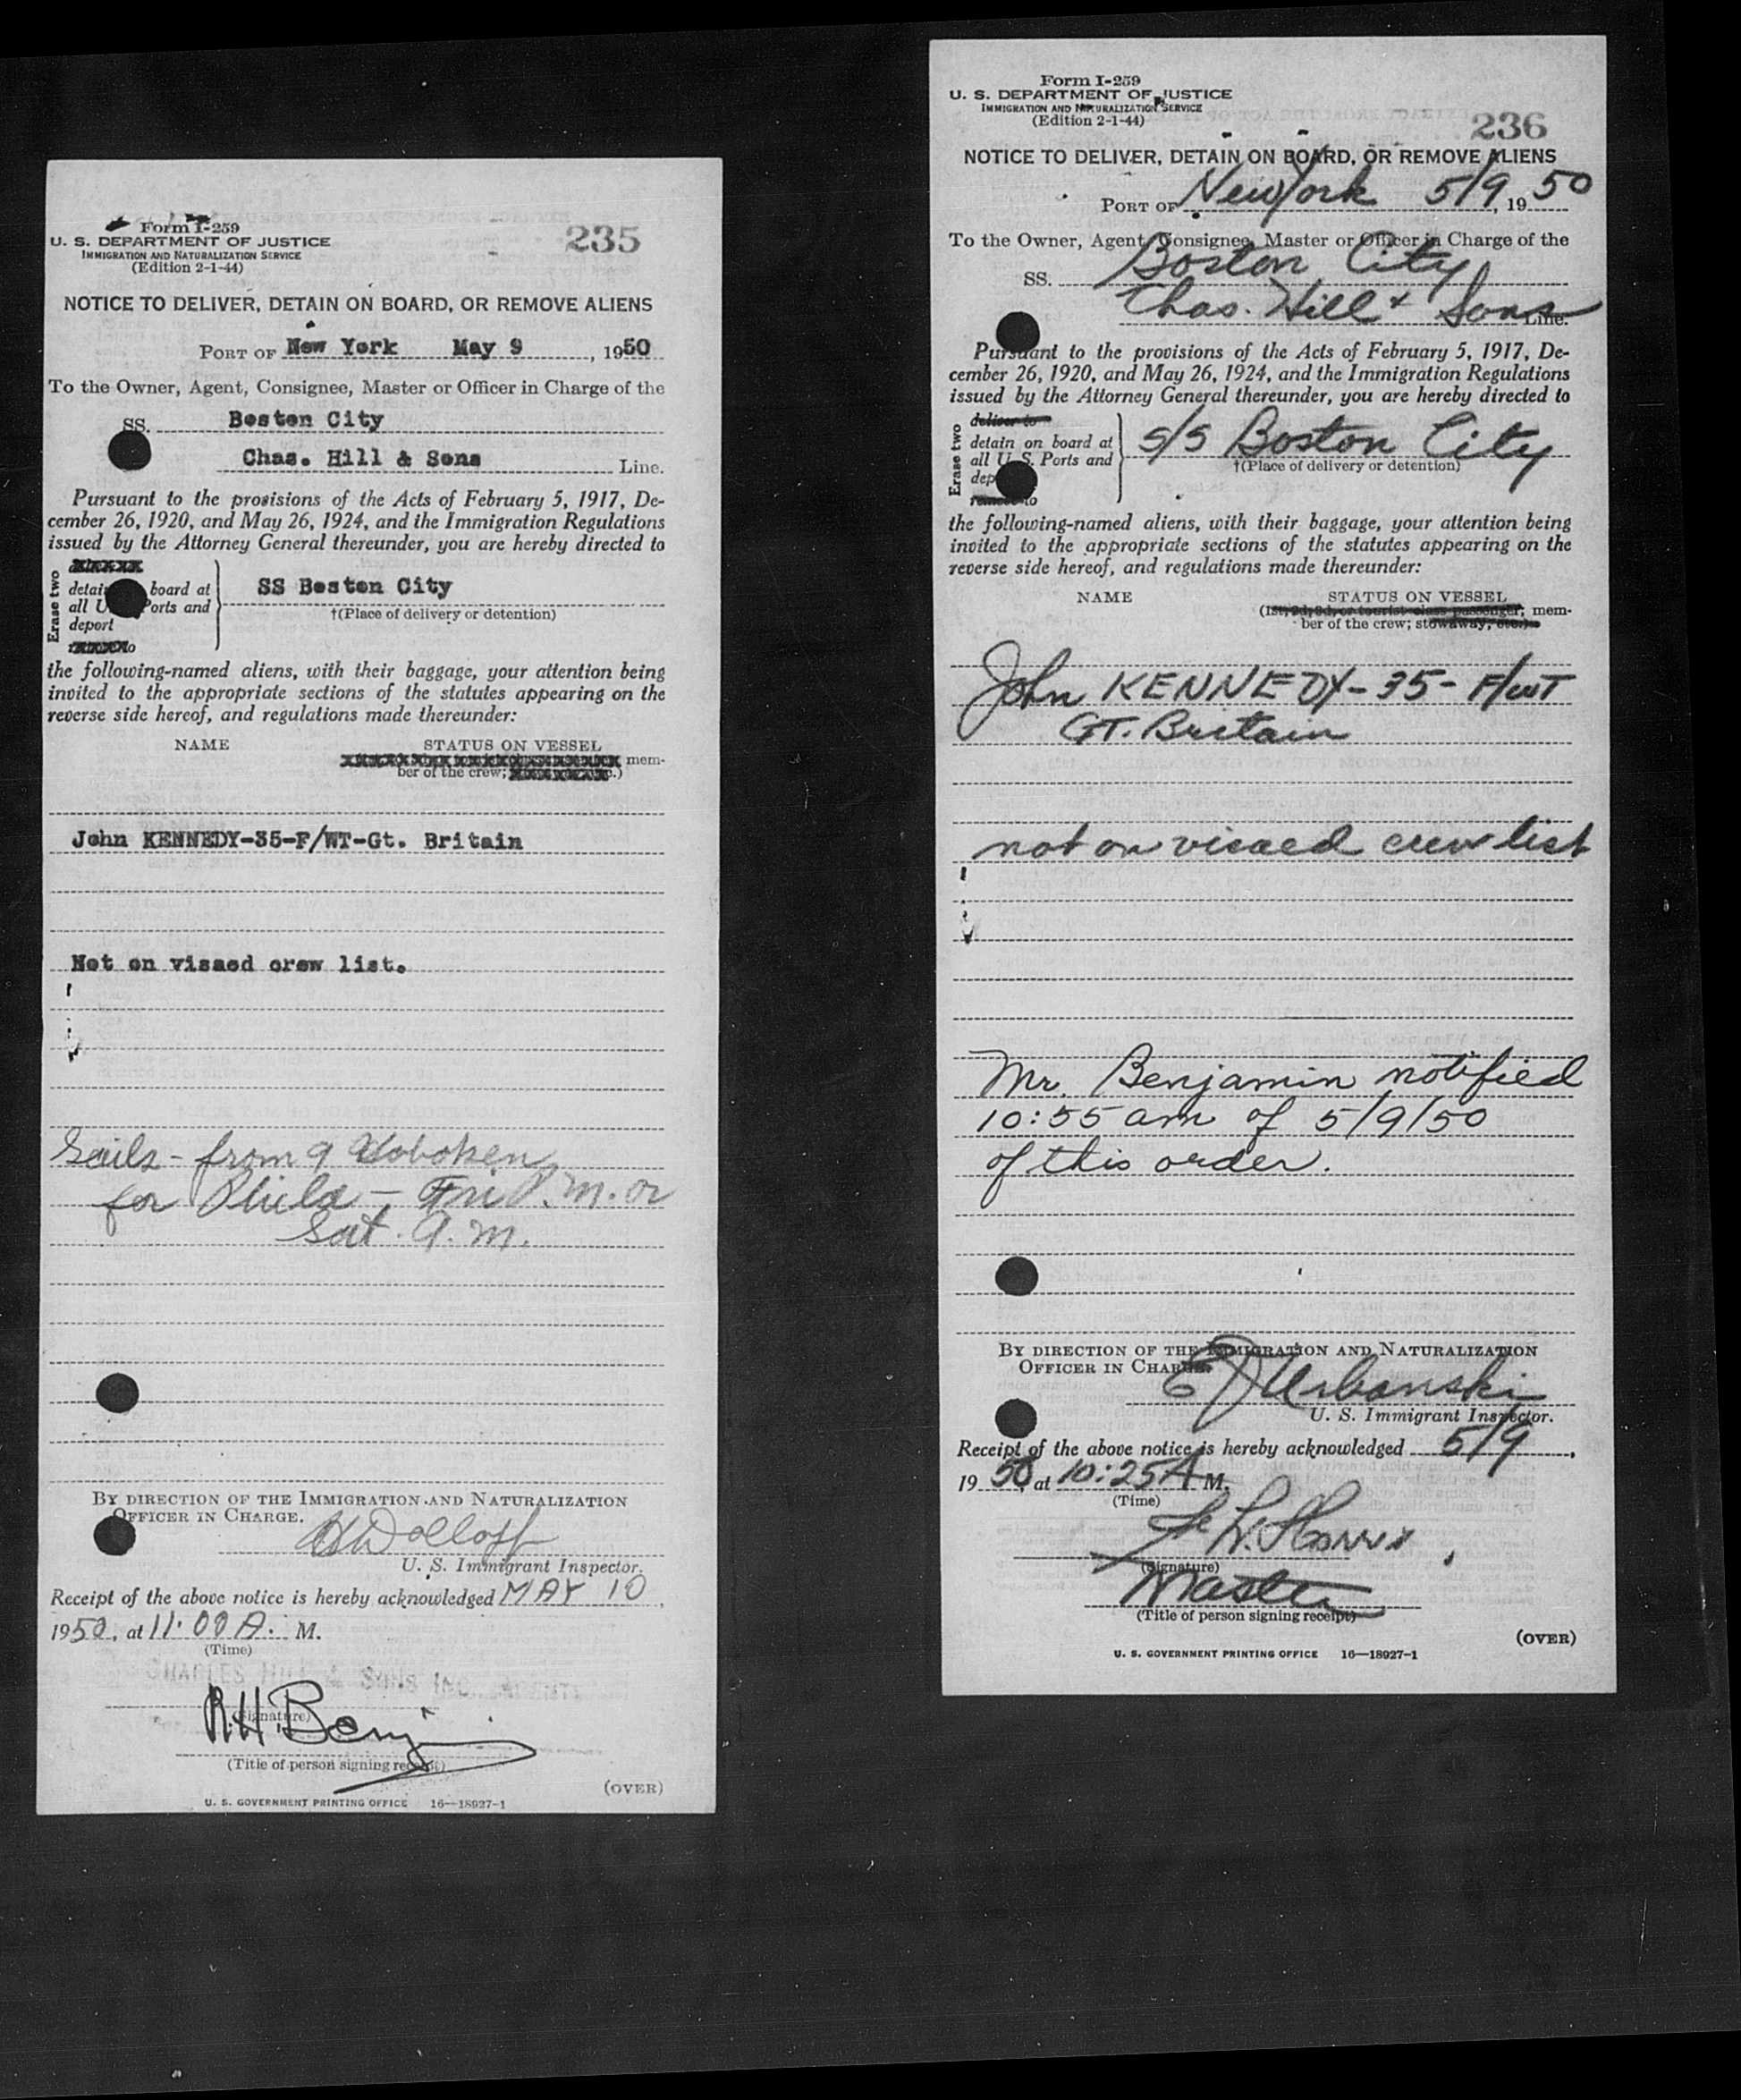 Form I-259
U. S. DEPARTMENT OF JUSTICE
IMMIGRATION AND NATURALIZATION SERVICE
(Edition 2-1-44)
235
NOTICE TO DELIVER, DETAIN ON BOARD, OR REMOVE ALIENS
PORT OF New York May 9, 1950
To the Owner, Agent, Consignee, Master or Officer in Charge of the
SS. Boston City
Chas. Hill & Sons Line.
Pursuant to the provisions of the Acts of February 5, 1917, De-
cember 26, 1920, and May 26, 1924, and the Immigration Regulations
issued by the Attorney General thereunder, you are hereby directed to
Erase two
detain board at
all U. Ports and
deport
SS Boston City
†(Place of delivery or detention)
the following-named aliens, with their baggage, your attention being
invited to the appropriate sections of the statutes appearing on the
reverse side hereof, and regulations made thereunder:
NAME STATUS ON VESSEL
mem-
ber of the crew;
John KENNEDY-35-F/WT-Gt. Britain
Not on visaed crew list.
Sails - from 9 Hoboken
for Phila - Fri P.M. or
Sat. A.M.
BY DIRECTION OF THE IMMIGRATION AND NATURALIZATION
OFFICER IN CHARGE.
U. S. Immigrant Inspector.
Receipt of the above notice is hereby acknowledged MAY 10,
1950, at 11:00 A. M.
(Time)
CHARLES HILL & SONS INC. AGENTS
R.H. Benj
(Signature)
(Title of person signing receipt)
(OVER)
U. S. GOVERNMENT PRINTING OFFICE 16—18927-1
Form I-259
U. S. DEPARTMENT OF JUSTICE
IMMIGRATION AND NATURALIZATION SERVICE
(Edition 2-1-44)
236
NOTICE TO DELIVER, DETAIN ON BOARD, OR REMOVE ALIENS
PORT OF New York 5/9, 1950
To the Owner, Agent, Consignee, Master or Officer in Charge of the
SS. Boston City
Chas. Hill & Sons Line.
Pursuant to the provisions of the Acts of February 5, 1917, De-
cember 26, 1920, and May 26, 1924, and the Immigration Regulations
issued by the Attorney General thereunder, you are hereby directed to
Erase two
deliver to
detain on board at
all U. S. Ports and
dep
remove to
S/S Boston City
†(Place of delivery or detention)
the following-named aliens, with their baggage, your attention being
invited to the appropriate sections of the statutes appearing on the
reverse side hereof, and regulations made thereunder:
NAME STATUS ON VESSEL
(1st, 2d, 3d, or tourist class passenger; mem-
ber of the crew; stowaway, etc.)
John KENNEDY-35-F/WT
GT. Britain
not on visaed crew list
Mr. Benjamin notified
10:55 am of 5/9/50
of this order.
BY DIRECTION OF THE IMMIGRATION AND NATURALIZATION
OFFICER IN CHARGE.
E J Urbanski
U. S. Immigrant Inspector.
Receipt of the above notice is hereby acknowledged 5/9,
1950, at 10:25 A M.
(Time)
(Signature)
Master
(Title of person signing receipt)
(OVER)
U. S. GOVERNMENT PRINTING OFFICE 16—18927-1